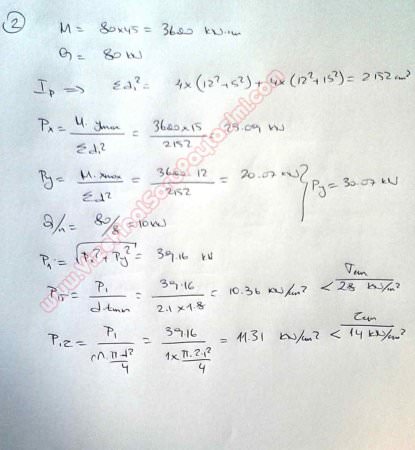 2
M = 80x45 = 3600 kN.cm
Q = 80 kN
Ip => Σdi² = 4x(12²+5²)+4x(12²+15²) = 2152 cm²
Px = M.ymax / Σdi² = 3600x15 / 2152 = 25.09 kN
Py = M.xmax / Σdi² = 3600.12 / 2152 = 20.07 kN } Py = 30.07 kN
Q/n = 80/8 = 10 kN
P1 = √(Px²+Py²) = 39.16 kN
P1 / d.tmin = 39.16 / 2.1x1.8 = 10.36 kN/cm² < σem 28 kN/cm²
P1 / m.π.d²/4 = 39.16 / 1xπ.2.1²/4 = 11.31 kN/cm² < τem 14 kN/cm²